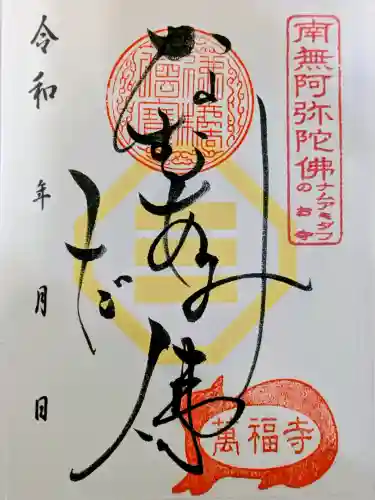 南無阿弥陀佛
ナムアミダブ
のお寺
なむあみ
だ佛
令和 年 月 日
萬福寺